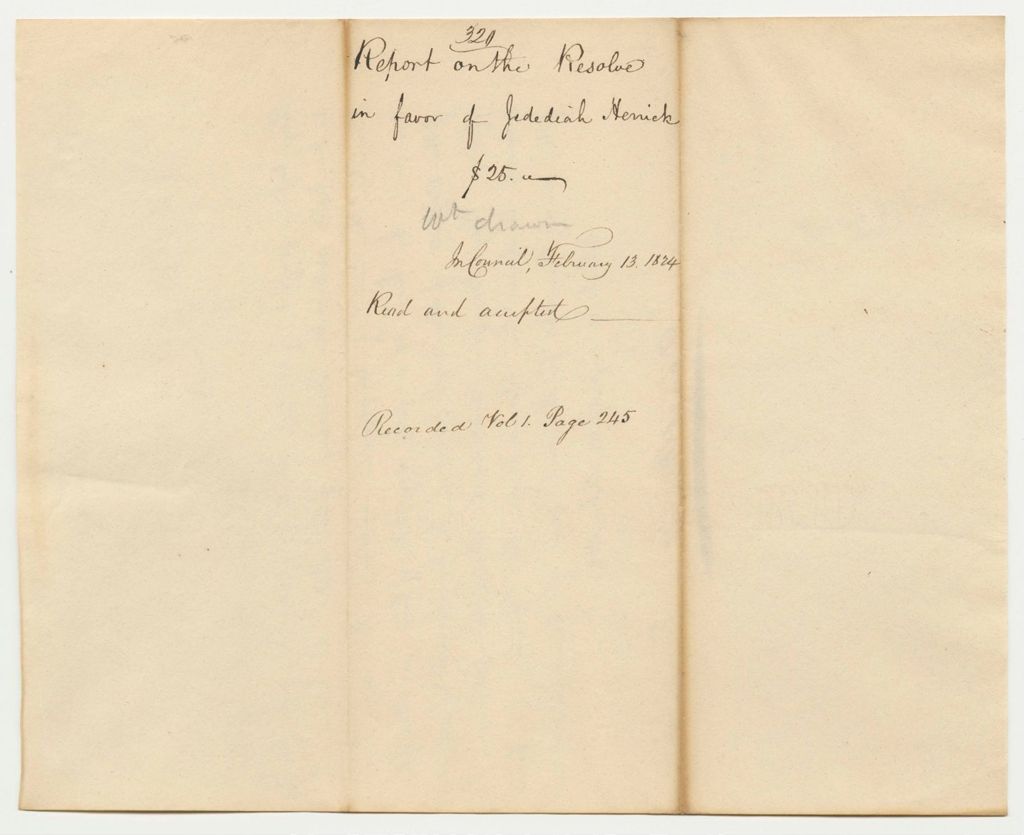 320
Report on the Resolve
in favor of Jedediah Herrick
$25.
Wt drawn
In Council, February 13. 1824
Read and accepted
Recorded Vol 1. Page 245